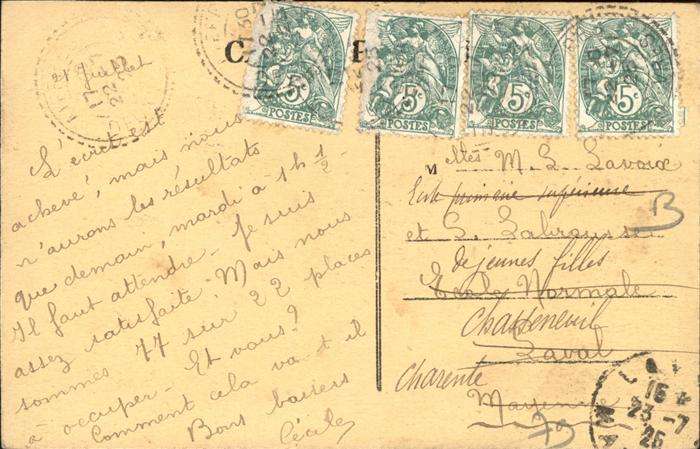 21 Juillet
L'écrit est
achevé, mais nous
n'aurons les résultats
que demain, mardi à 1h ½ -
Il faut attendre - Je suis
assez satisfaite - Mais nous
sommes 77 sur 22 places
à occuper - Et vous?
Comment cela va t il
Bons baisers
Cécile
5c 5c 5c 5c
POSTES POSTES POSTES POSTES
M elles M. L. Lavoix
Ecole primaire supérieure
et S. Labrousse
de jeunes filles
Ecole Normale
Chasseneuil
Laval
Charente
Mayenne
B
16
23 - 7
26